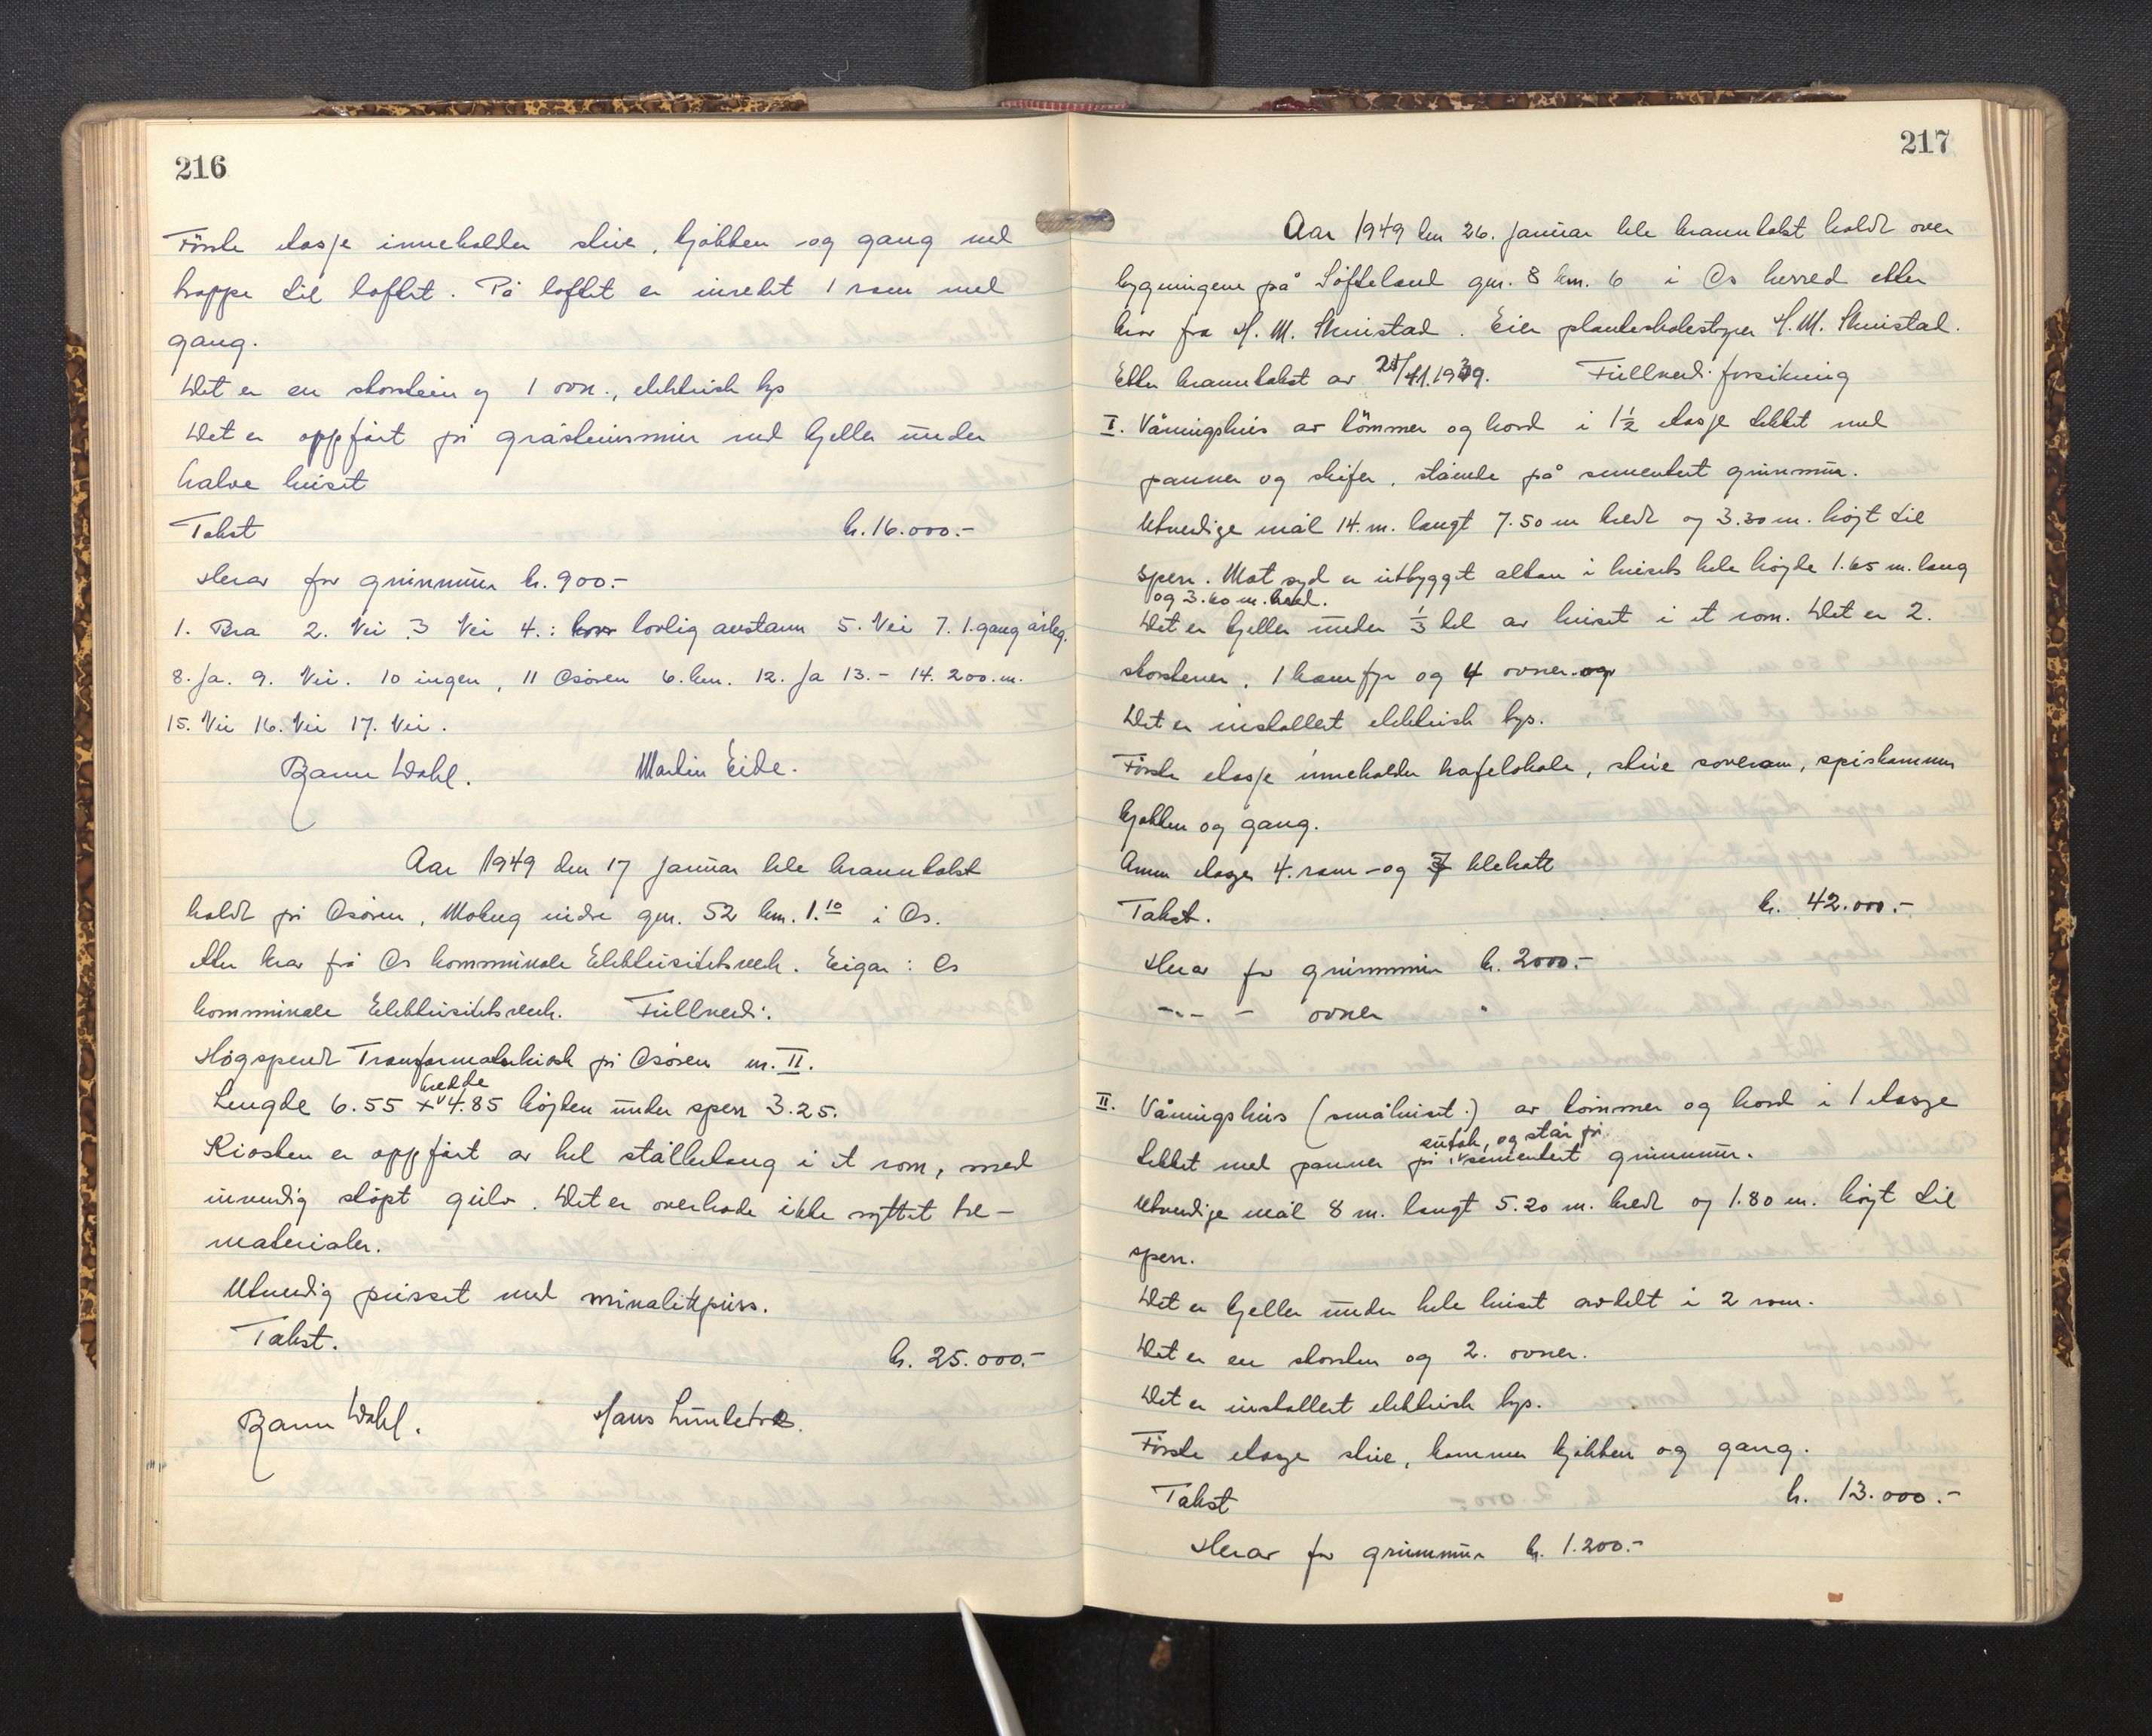 216
Første etasje inneholder stue, kjøkken og gang med
trappe til loftet. På loftet er innredet 1 rom med
gang.
Det er en skorstein og 1 ovn., elektrisk lys
Det er oppført på gråsteinsmur med kjeller under
halve huset
Takst kr. 16.000.-
Herav for grunnmur kr. 900.-
1. Bra 2. Nei 3 Nei 4.: lovlig avstann 5. Nei 7. 1.gang årleg.
8. Ja. 9. Nei. 10 ingen, 11 Osøren 6. km. 12. Ja 13. - 14. 200. m.
15. Nei 16. Nei 17. Nei.
Wahl. Martin Eide.
Aar 1949 den 17 januar ble branntakst
holdt på Osøren, Moberg indre gnr. 52 bnr. 1.10 i Os.
etter krav frå Os kommunale Elektrisitetsverk. Eigar: Os
kommunale Elektrisitetsverk. Fullverdi.
Høgspendt Transformatorkiosk på Osøren nr. II.
Lengde 6.55 x bredde 4.85 høyden under sperr 3.25.
Kiosken er oppført av hel ståll i et rom, med
innvendig støpt gulv. Det er overhode ikke nyttet tre-
materialer.
Utvendig pusset med minalitpuss.
Takst.
kr. 25.000.-
Wahl. Hans
217
Aar 1949 den 26. januar ble branntakst holdt over
bygningene på Søfteland gnr. 8 bnr. 6 i Os herred etter
krav fra H. M. Skeistad. Eier planteskolestyrer H. M. Skeistad.
Etter branntakst av 25/11.1939. Fullverdi forsikring
I. Våningshus av tømmer og bord i 1½ etasje tekket med
panner og skifer, stående på sementert grunnmur.
Utvendige mål 14. m. langt 7.50 m bredt og 3.30 m. højt til
sperr. Mot syd er utbygget altan i husets hele højde 1.65 m. lang
og 3.60 m. bred.
Det er kjeller under ⅓ del av huset i et rom. Det er 2.
skorstener, 1 komfyr og 4 ovner.
Det er installert elektrisk lys.
Første etasje inneholder kafelokale, stue soverom, spiskammer
kjøkken og gang.
Annen etasje 4. rom - og 7 klekott
Takst. kr. 42.000.-
Herav for grunnmur kr. 2000.-
-"- - ovner "
II. Våningshus (småhuset.) av tømmer og bord i 1 etasje
tekket med panner på sutak, og står på sementert grunnmur.
Utvendige mål 8 m. langt 5.20 m. bredt og 1.80 m. højt til
sperr.
Det er kjeller under hele huset avdelt i 2 rom.
Det er en skorsten og 2. ovner.
Det er installert elektrisk lys.
Første etasje stue, kammer kjøkken og gang.
Takst kr. 13.000.-
Herav for grunnmur kr. 1.200.-